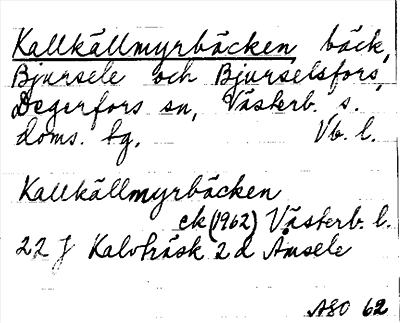 Kallkällmyrbäcken bäck,
Bjursele och Bjurselsfors,
Degerfors sn, Västerb. s.
doms. tg. Vb. l.
Kallkällmyrbäcken
ek (1962) Västerb. l.
22 J Kalvträsk 2 d Åmsele
ASO 62